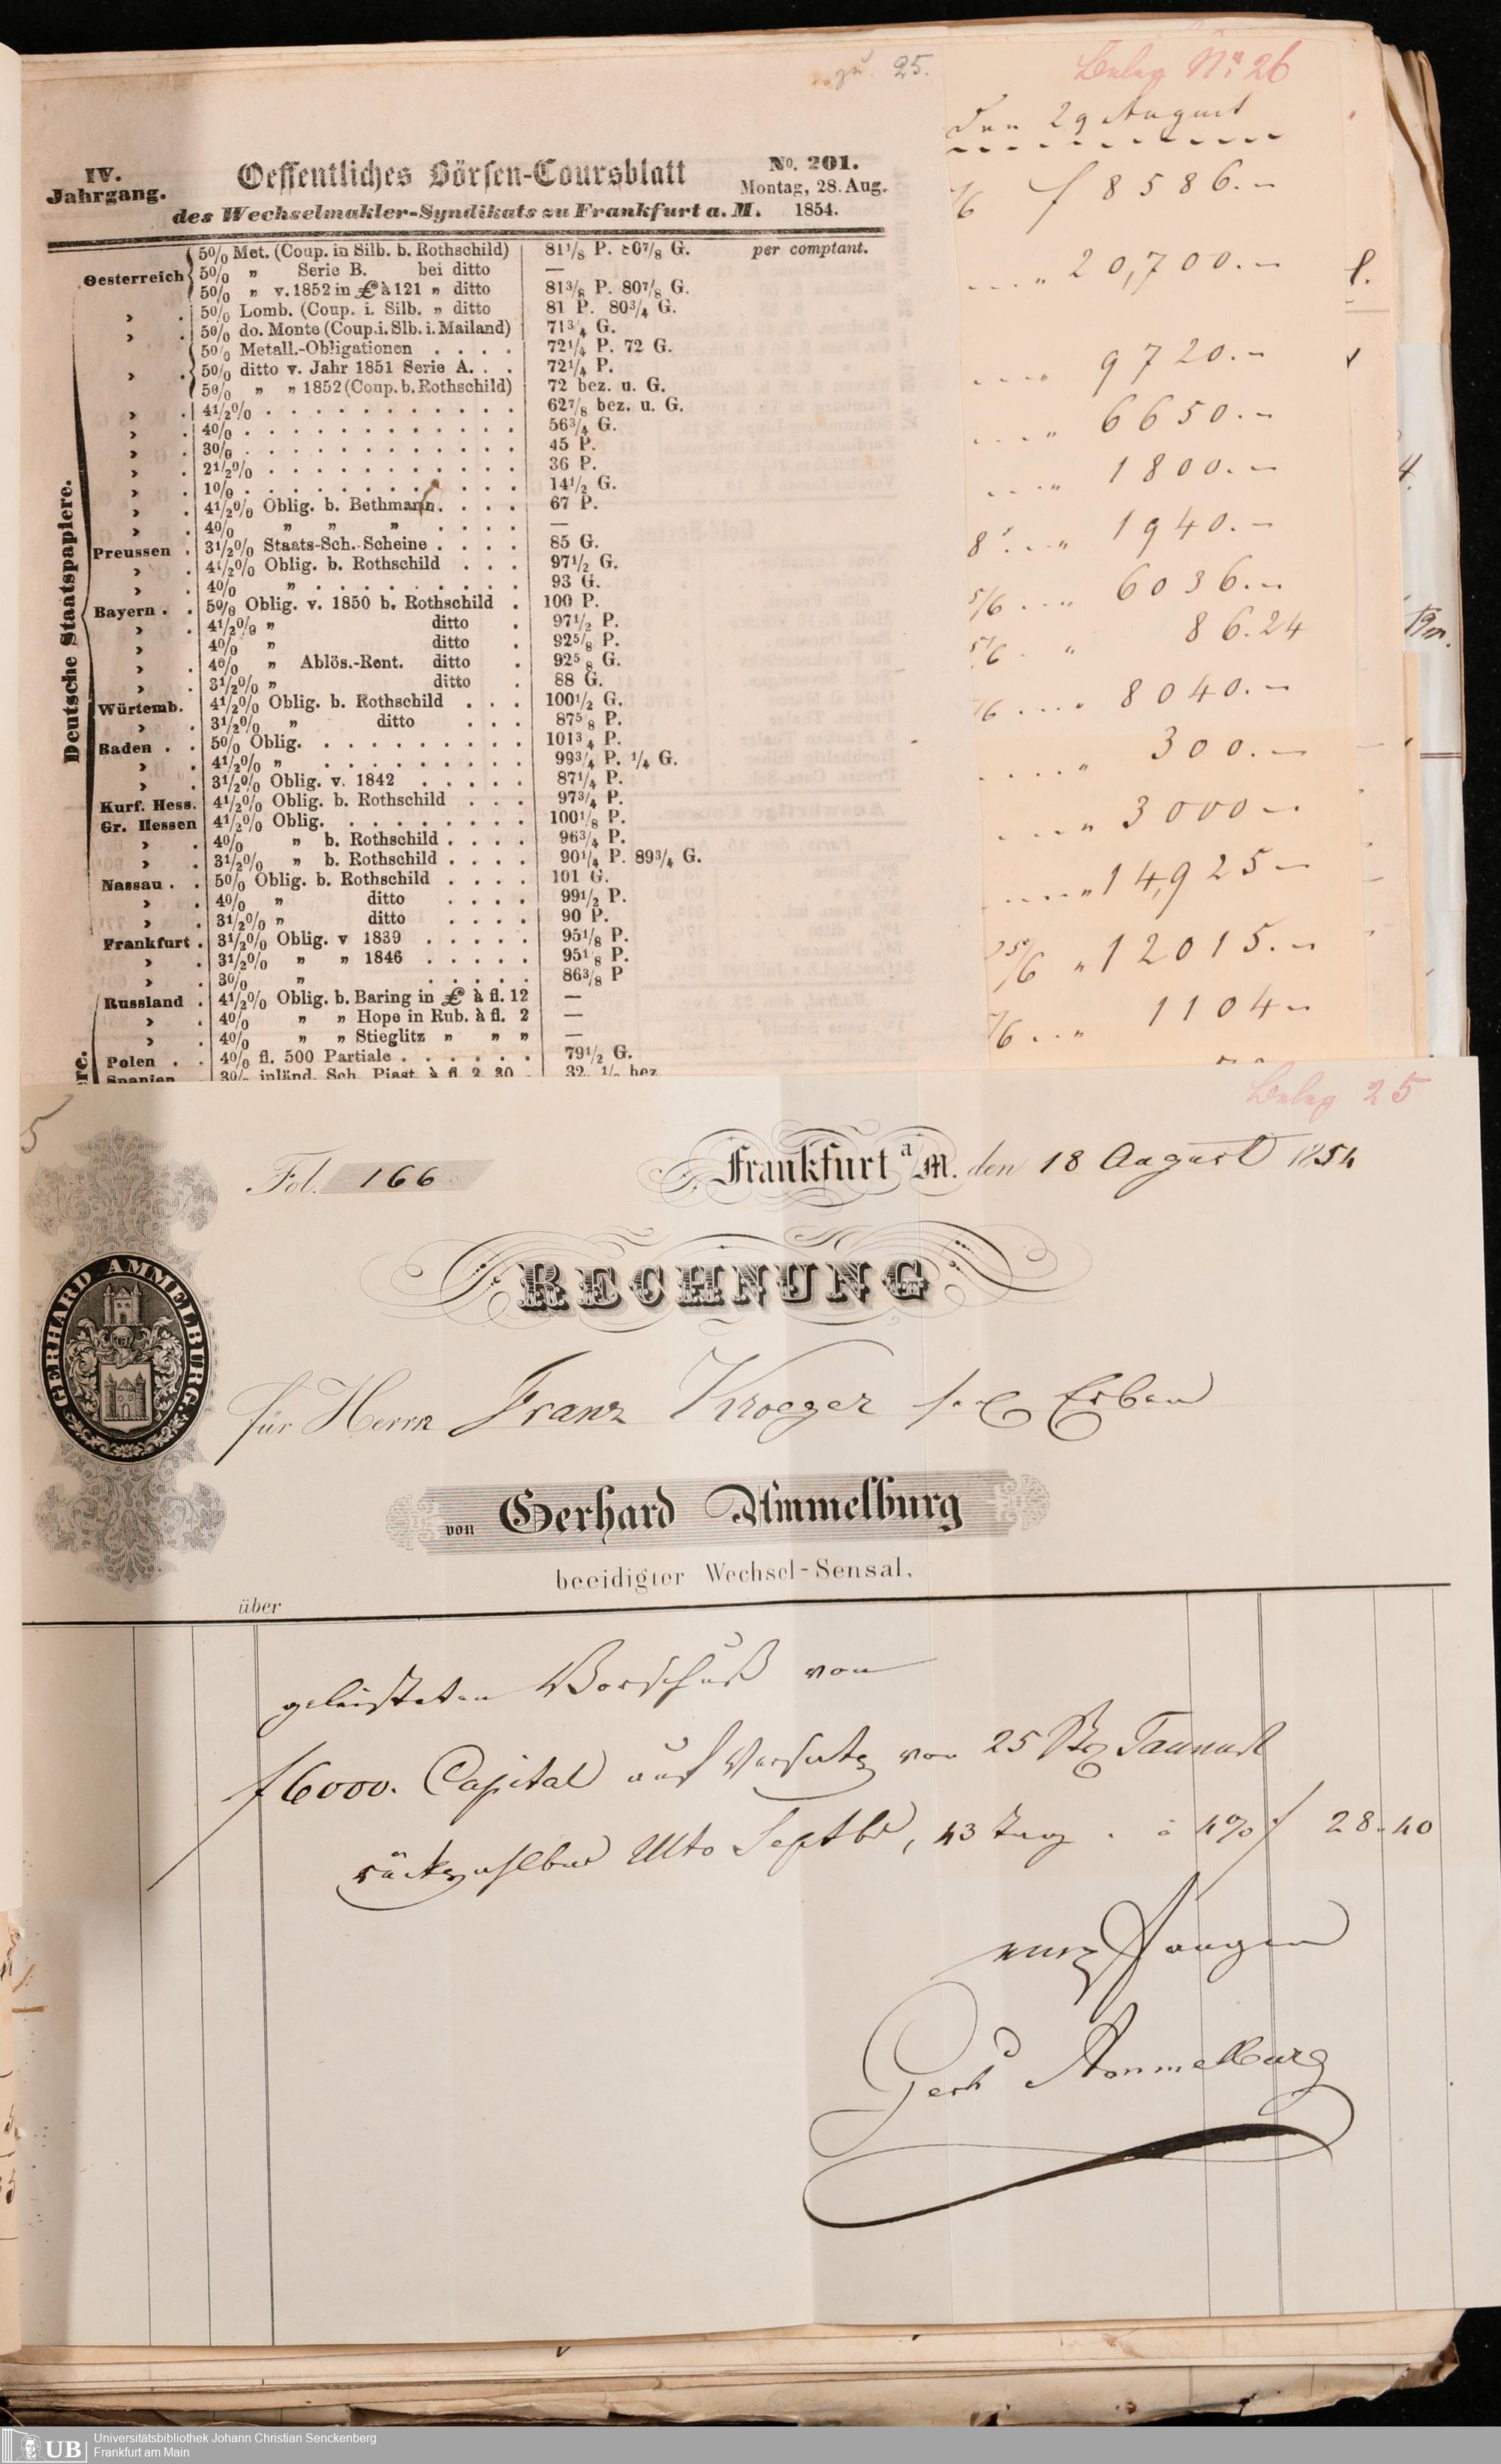 zu 25.
IV. Jahrgang.
Oeffentliches Börsen-Coursblatt
des Wechselmakler-Syndikats zu Frankfurt a. M.
No. 201.
Montag, 28. Aug.
1854.
Deutsche Staatspapiere.
per comptant.
Oesterreich 5% Met. (Coup. in Silb. b. Rothschild) 81 1/8 P. 80 7/8 G.
5% „ Serie B. bei ditto —
5% „ v. 1852 in £ à 121 „ ditto 81 3/8 P. 80 7/8 G.
› . 5% Lomb. (Coup. i. Silb. „ ditto 81 P. 80 3/4 G.
› . 5% do. Monte (Coup. i. Slb. i. Mailand) 71 3/4 G.
5% Metall.-Obligationen . . . . 72 1/4 P. 72 G.
› . 5% ditto v. Jahr 1851 Serie A. . . 72 1/4 P.
5% „ „ 1852 (Coup. b. Rothschild) 72 bez. u. G.
› . 4 1/2% . . . . . . . . . . . 62 7/8 bez. u. G.
› . 4% . . . . . . . . . . . 56 3/4 G.
› . 3% . . . . . . . . . . . 45 P.
› . 2 1/2% . . . . . . . . . . . 36 P.
› . 1% . . . . . . . . . . . 14 1/2 G.
› . 4 1/2% Oblig. b. Bethmann. . . . 67 P.
› . 4% „ „ „ . . . . —
Preussen . 3 1/2% Staats-Sch.-Scheine . . . . 85 G.
› . 4 1/2% Oblig. b. Rothschild . . . 97 1/2 G.
› . 4% „ . . . . . . . . . 93 G.
Bayern . . 5% Oblig. v. 1850 b. Rothschild . 100 P.
› . 4 1/2% „ ditto . 97 1/2 P.
› . 4% „ ditto . 92 5/8 P.
› . 4% „ Ablös.-Rent. ditto . 92 5/8 G.
› . 3 1/2% „ ditto . 88 G.
Würtemb. 4 1/2% Oblig. b. Rothschild . . . 100 1/2 G.
› . 3 1/2% „ ditto . . . 87 5/8 P.
Baden . . 5% Oblig. . . . . . . . . . 101 3/4 P.
› . 4 1/2% „ . . . . . . . . . 99 3/4 P. 1/4 G.
› . 3 1/2% Oblig. v. 1842 . . . . . 87 1/4 P.
Kurf. Hess. 4 1/2% Oblig. b. Rothschild . . . 97 3/4 P.
Gr. Hessen 4 1/2% Oblig. . . . . . . . . 100 1/8 P.
› . 4% „ b. Rothschild . . . . 96 3/4 P.
› . 3 1/2% „ b. Rothschild . . . . 90 1/4 P. 89 3/4 G.
Nassau . . 5% Oblig. b. Rothschild . . . . 101 G.
› . 4% „ ditto . . . . 99 1/2 P.
› . 3 1/2% „ ditto . . . . 90 P.
Frankfurt . 3 1/2% Oblig. v 1839 . . . . . 95 1/8 P.
› . 3 1/2% „ „ 1846 . . . . . 95 1/8 P.
› . 3% „ . . . . . 86 3/8 P
Russland . 4 1/2% Oblig. b. Baring in £ à fl. 12 —
› . 4% „ „ Hope in Rub. à fl. 2 —
› . 4% „ „ Stieglitz „ „ „ —
Polen . . 4% fl. 500 Partiale . . . . . . 79 1/2 G.
Spanien 3% inländ. Sch. Piast. à fl. 2. 30 . 32. 1/2 bez
Beleg No 26
Den 29 August
f 8586.-
„ 20,700.-
„ 9720.-
„ 6650.-
„ 1800.-
„ 1940.-
5/6 „ 6036.-
5/6 „ 86.24
/6 „ 8040.-
„ 300.-
„ 3000-
„ 14,925-
25/6 „ 12015.-
/6 „ 1104-
Beleg 25
Fol. 166
Frankfurt a/M. den 18 August 1854
RECHNUNG
GERHARD AMMELBURG.
für Herrn Franz Kroeger sel Erben
von Gerhard Ammelburg
beeidigter Wechsel-Sensal,
über
geleisteten Vorschuß von
f 6000. Capital auf Versatz von 25 Stk Taunusb
rückzahlbar Ulto Septbr, 43 Tag . à 4% f 28.40
empfangen
Gerhd Ammelburg
UB Universitätsbibliothek Johann Christian Senckenberg
Frankfurt am Main